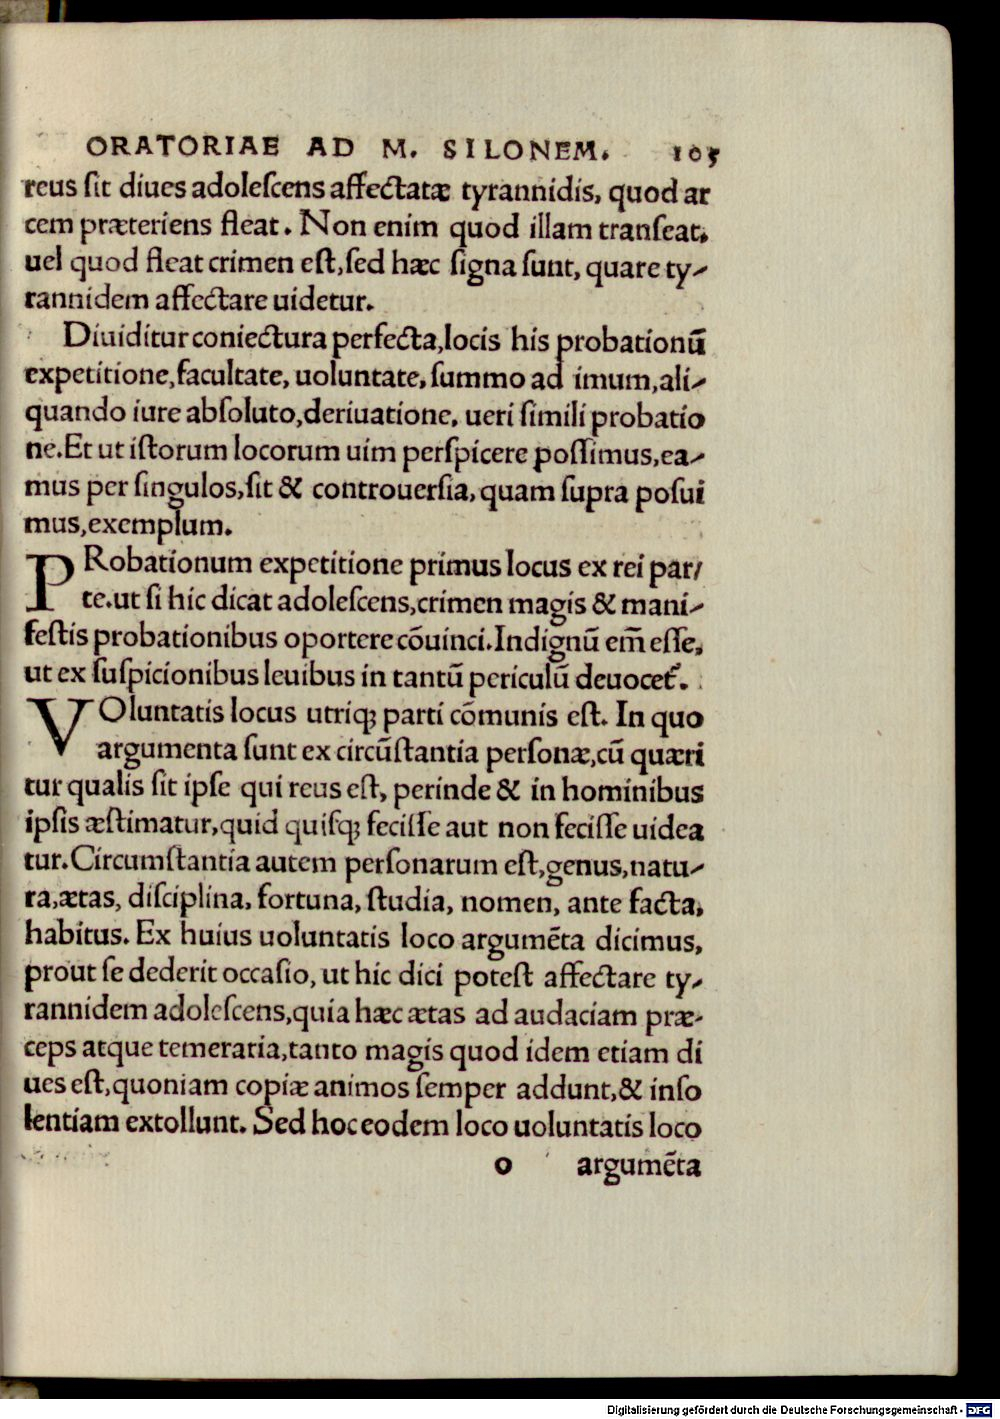 ORATORIAE AD M. SILONEM. 105
reus ſit diues adoleſcens affectatæ tyrannidis, quod ar
cem præteriens fleat. Non enim quod illam tranſeat,
uel quod fleat crimen eſt, ſed hæc ſigna ſunt, quare ty-
rannidem affectare uidetur.
Diuiditur coniectura perfecta, locis his probationũ
expetitione, facultate, uoluntate, ſummo ad imum, ali-
quando iure abſoluto, deriuatione, ueri ſimili probatio
ne. Et ut iſtorum locorum uim perſpicere poſſimus, ea-
mus per ſingulos, ſit & controuerſia, quam ſupra poſui
mus, exemplum.
PRobationum expetitione primus locus ex rei par/
te. ut ſi hic dicat adoleſcens, crimen magis & mani-
feſtis probationibus oportere cõuinci. Indignũ em̃ eſſe,
ut ex ſuſpicionibus leuibus in tantũ periculũ deuocet᷑.
VOluntatis locus utriqꝫ parti cõmunis eſt. In quo
argumenta ſunt ex circũſtantia perſonæ, cũ quæri
tur qualis ſit ipſe qui reus eſt, perinde & in hominibus
ipſis æſtimatur, quid quiſqꝫ feciſſe aut non feciſſe uidea
tur. Circumſtantia autem perſonarum eſt, genus, natu-
ra, ætas, diſciplina, fortuna, ſtudia, nomen, ante facta,
habitus. Ex huius uoluntatis loco argumẽta dicimus,
prout ſe dederit occaſio, ut hic dici poteſt affectare ty-
rannidem adoleſcens, quia hæc ætas ad audaciam præ-
ceps atque temeraria, tanto magis quod idem etiam di
ues eſt, quoniam copiæ animos ſemper addunt, & inſo
lentiam extollunt. Sed hoc eodem loco uoluntatis loco
o argumẽta
Digitalisierung gefördert durch die Deutsche Forschungsgemeinschaft - DFG